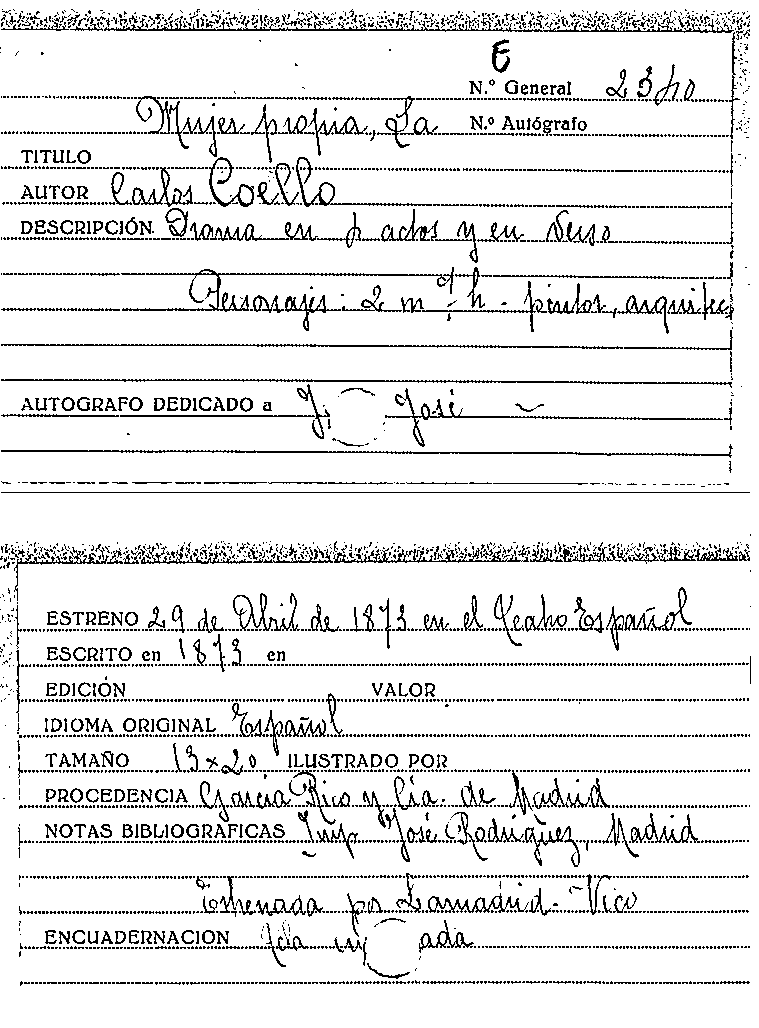 E
N.º General 2340
Mujer propia, La N.º Autógrafo
TITULO
AUTOR Carlos Coello
DESCRIPCIÓN. Drama en actos y en verso
Personajes: 2 m h - pintor, arquitec
AUTOGRAFO DEDICADO a José
ESTRENO 29 de Abril de 1873 en el Teatro Español
ESCRITO en 1873 en
EDICIÓN VALOR
IDIOMA ORIGINAL Español
TAMAÑO 13x20 ILUSTRADO POR
PROCEDENCIA García Rico y Cía. de Madrid
NOTAS BIBLIOGRAFICAS Imp José Rodríguez, Madrid
Estrenada por Lamadrid - Vico
ENCUADERNACION